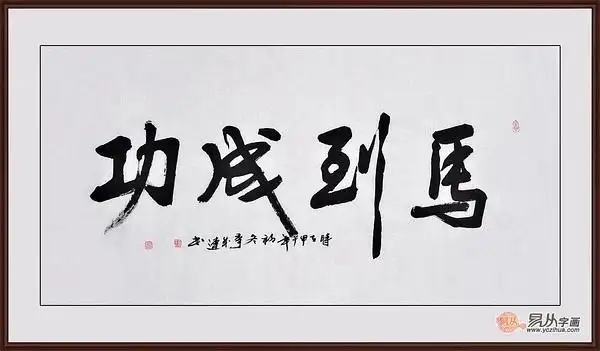 馬到成功
時在甲午年初冬李成連书
易从字画
www.yczihua.com